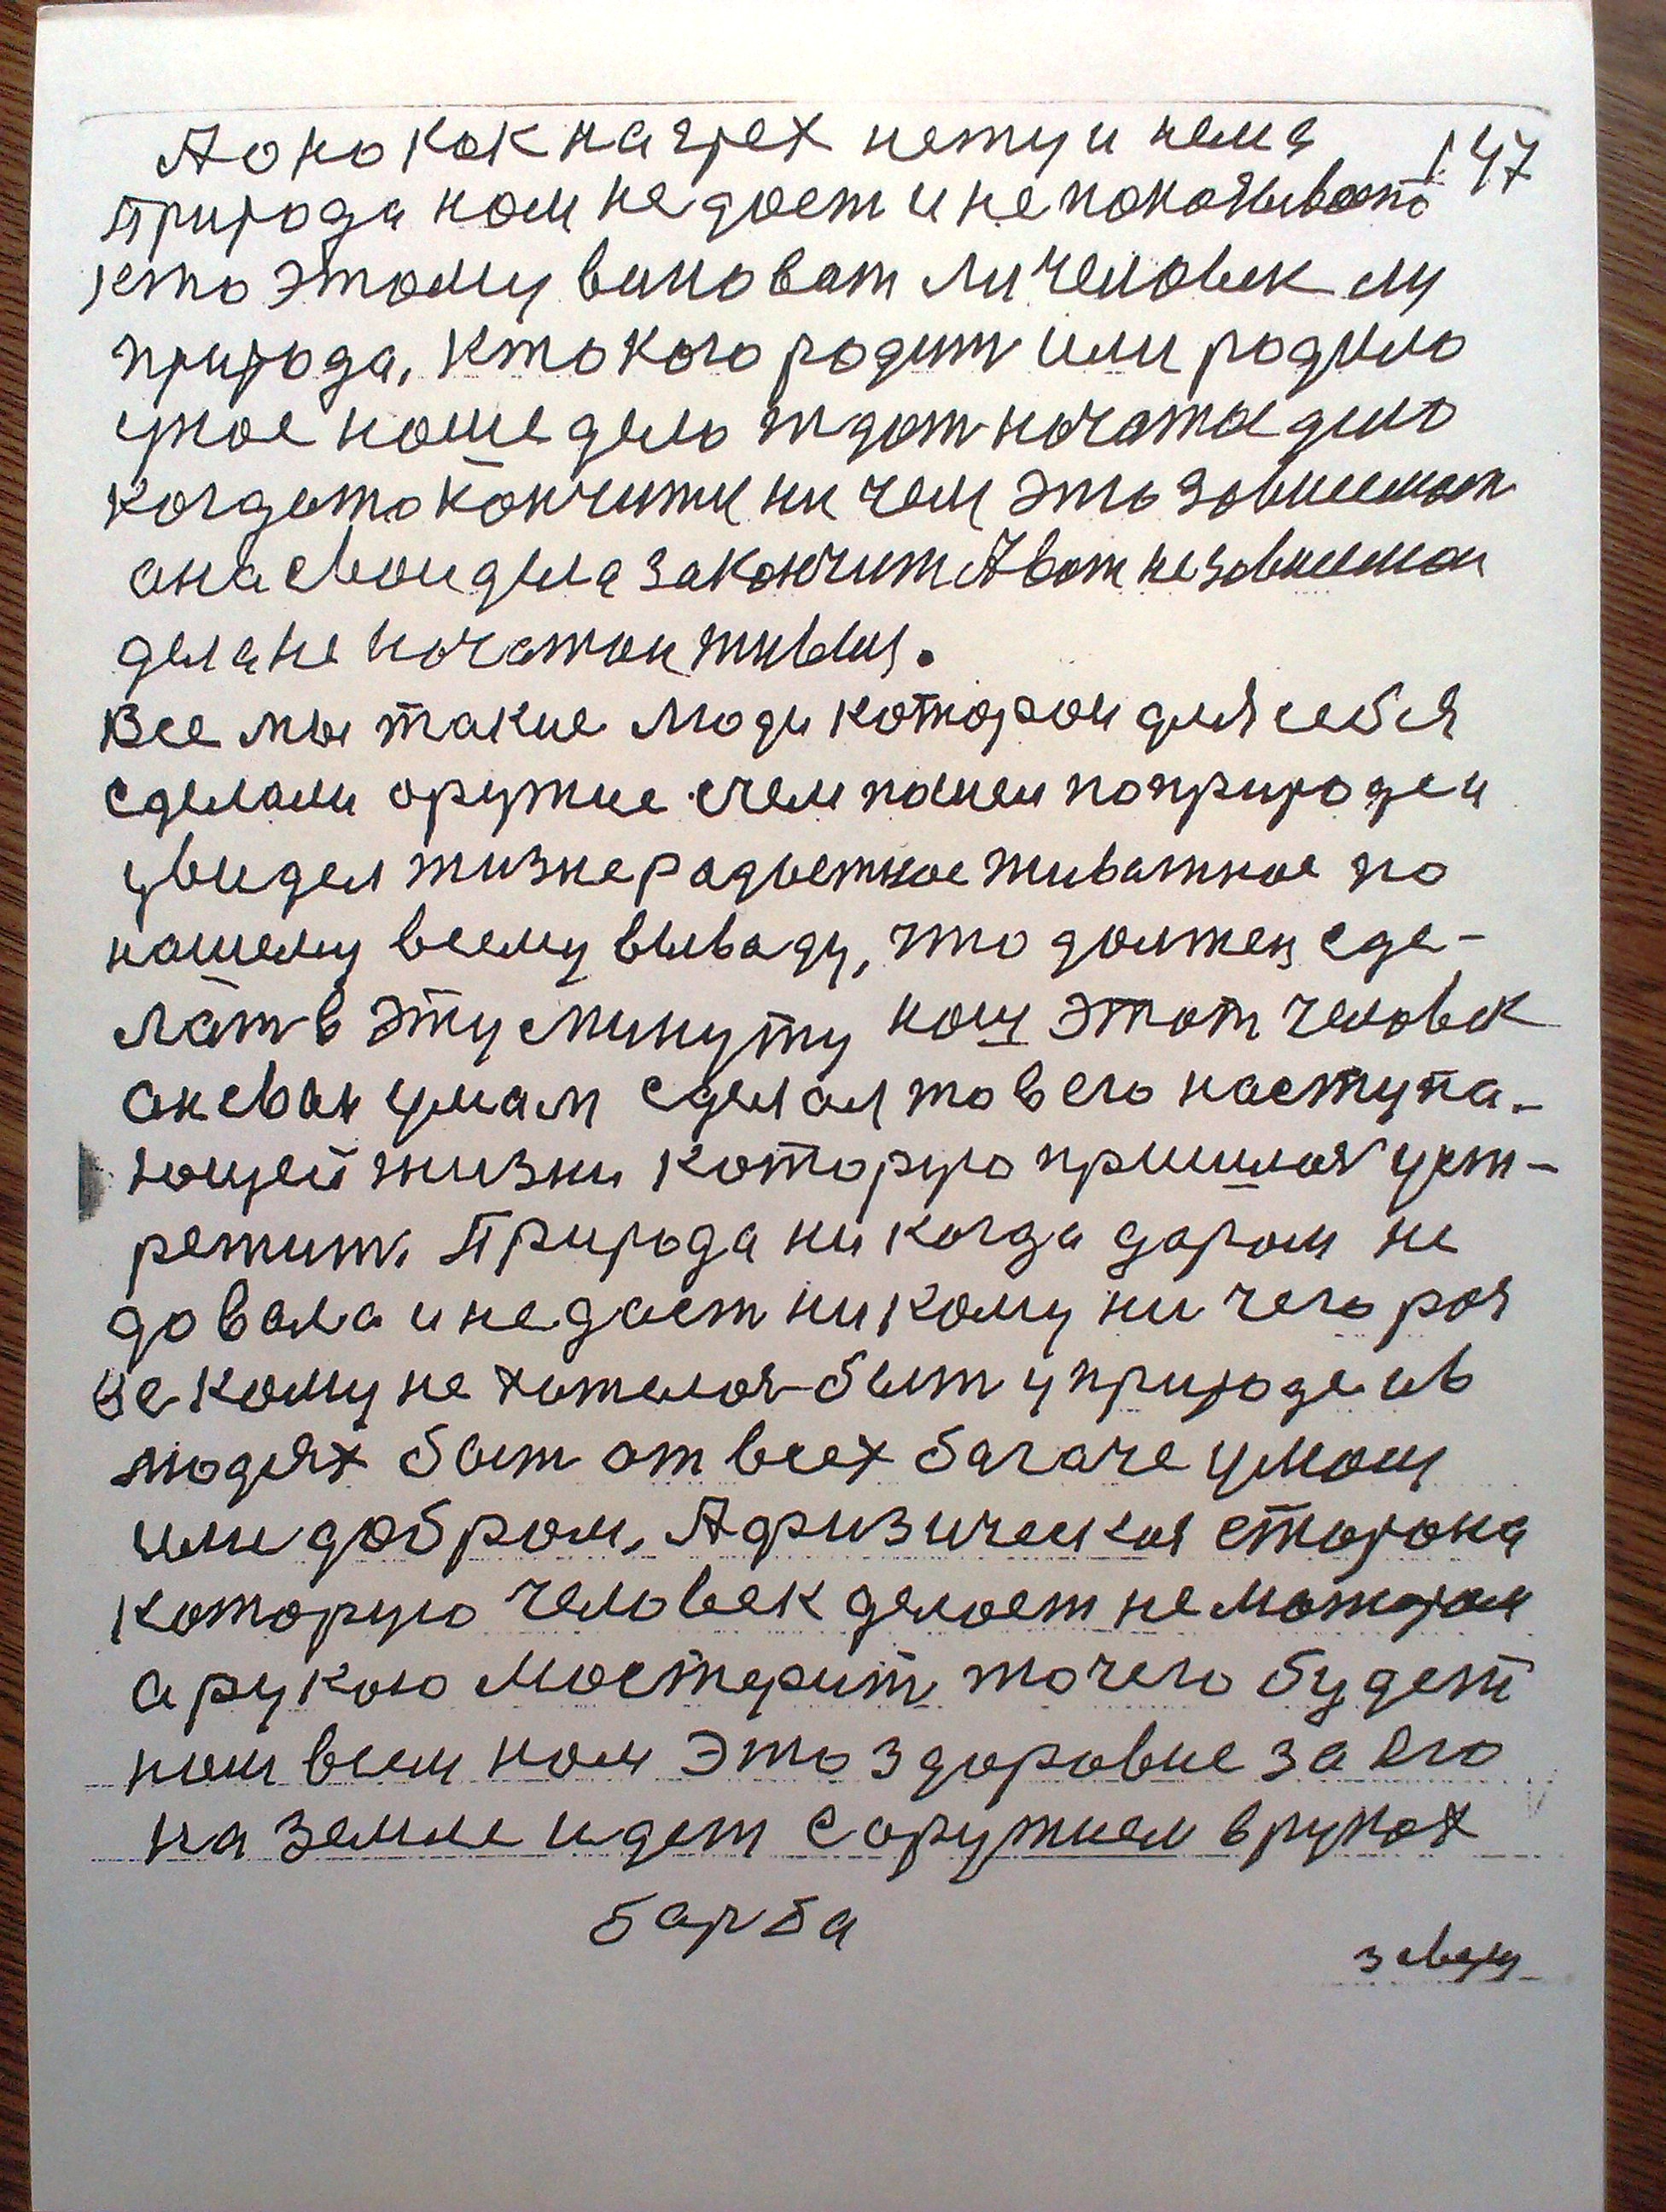 А оно как на грех нету и нема 147
природа нам не дает и не показывает
кто этому виноват ли человек ли
природа, кто кого родит или родило
у нас наше дело ждат начатое дило
когдато кончити ни чем это зависимая
она свои дела закончит А вот независимаи
дела не начатои живыя.
Все мы такие люди которои для себя
сделали оружие счем пошел поприроде и
увидел жизнерадостное живатное по
нашему всему вываду, что должен сде-
лат в эту минуту наш этот человек
он свои умам сделал то в его наступа-
ющей жизни которую пришлоя уст-
ретит. Природа ни когда даром не
довала и не дает ни кому ни чего роя
зе кому не хотелоя быт у природе ив
людях быт от всех багаче умом
или добром, А физическая сторона
которую человек делает не матором
а рукою мостерит точего будет
нам всем ном это здоровие за его
на земле идет с оружием в руках
барба